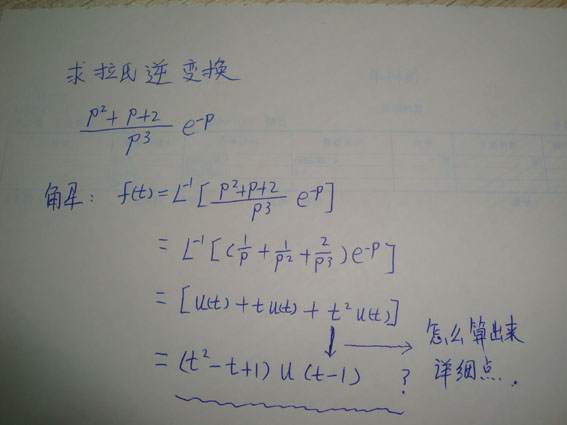 求拉氏逆变换
\frac{p²+p+2}{p³} e^{-p}
解: f(t)=L⁻¹[\frac{p²+p+2}{p³} e^{-p}]
=L⁻¹[(\frac{1}{p}+\frac{1}{p²}+\frac{2}{p³})e^{-p}]
=[u(t)+tu(t)+t²u(t)]
=(t²-t+1)u(t-1)
→ 怎么算出来
? 详细点.